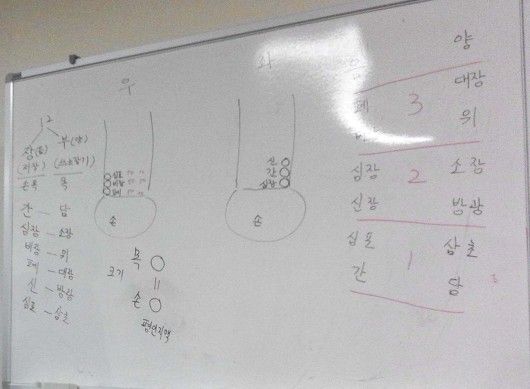 우
좌
12
장(음) 부(양)
(저장) (소화기)
손목 목
간 - 담
심장 - 소장
비장 - 위
폐 - 대장
신 - 방광
심포 - 삼초
심포
비장
폐
손
신
간
심장
손
목
크기
=
손
평인지맥
양
대장
폐 3 위
심장 2 소장
신장 방광
심포 1 삼초
간 담